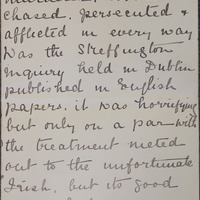 chased, persecuted &
afflicted in every way
Was the Streffington
inquiry held in Dublin
published in English
papers. it was horrifying
but only on a par with
the treatment meted
out to the unfortunate
Irish. but its good